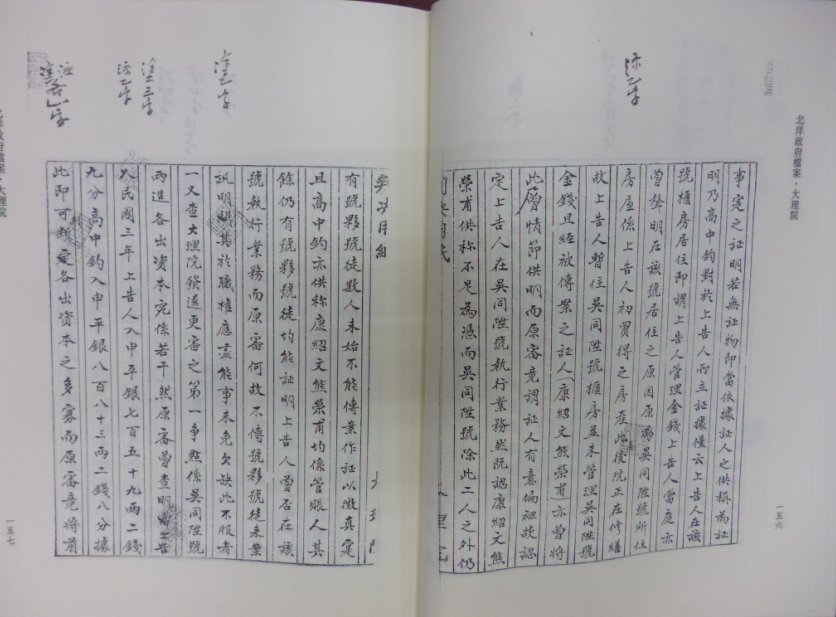 北洋政府檔案·大理院
添一字
事實之証明若無証物即當依據証人之供據為証
明乃高中鈞對於上告人而立証據僅云上告人在該
號櫃房居住即謂上告人管理金錢上告人當庭亦
曾發明在該號居住之原因原為吳同陞號所住
房屋係上告人初買得之房產後院正在修繕
故上告人暫住吳同陞號櫃房並未管理吳同陞號
金錢且經被傳案之証人康紹文熊榮甫亦曾將
此層情節供明而原審竟謂証人有意偏袒故認
定上告人在吳同陞號執行業務然既認康紹文熊
榮甫供称不足為憑而吳同陞號除此二人之外仍
一五六
有號夥號徒數人未始不能傳案作証以徵真實
且高中鈞亦供称康紹文熊榮甫均係管賬人其
餘仍有號夥號徒均能証明上告人曾否在該
號執行業務而原審何故不傳號夥號徒來案
訊明其於職權應盡能事未免欠缺此不服者
一又查大理院發還更審之第一爭點係吳同陞號
兩造各出資本究係若干然原審曾查明上告
人民國三年上告人入申平銀七百五十九兩二錢
九分高中鈞入申平銀八百八十三兩二錢八分據
此即可斷定各出資本之多寡而原審竟將前
塗一字
塗三字
添一字
北洋政府檔案·大理院
一五七